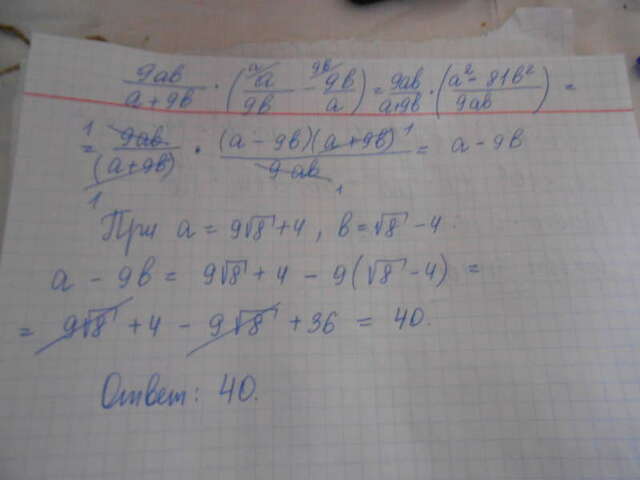 9ab/(a+9b) · (a/9b - 9b/a) = 9ab/(a+9b) · ((a²-81b²)/9ab) =
= 9ab/(a+9b) · (a-9b)(a+9b)/9ab = a-9b
При a = 9√8+4, b = √8-4.
a - 9b = 9√8+4 - 9(√8-4) =
= 9√8 + 4 - 9√8 + 36 = 40.
Ответ: 40.